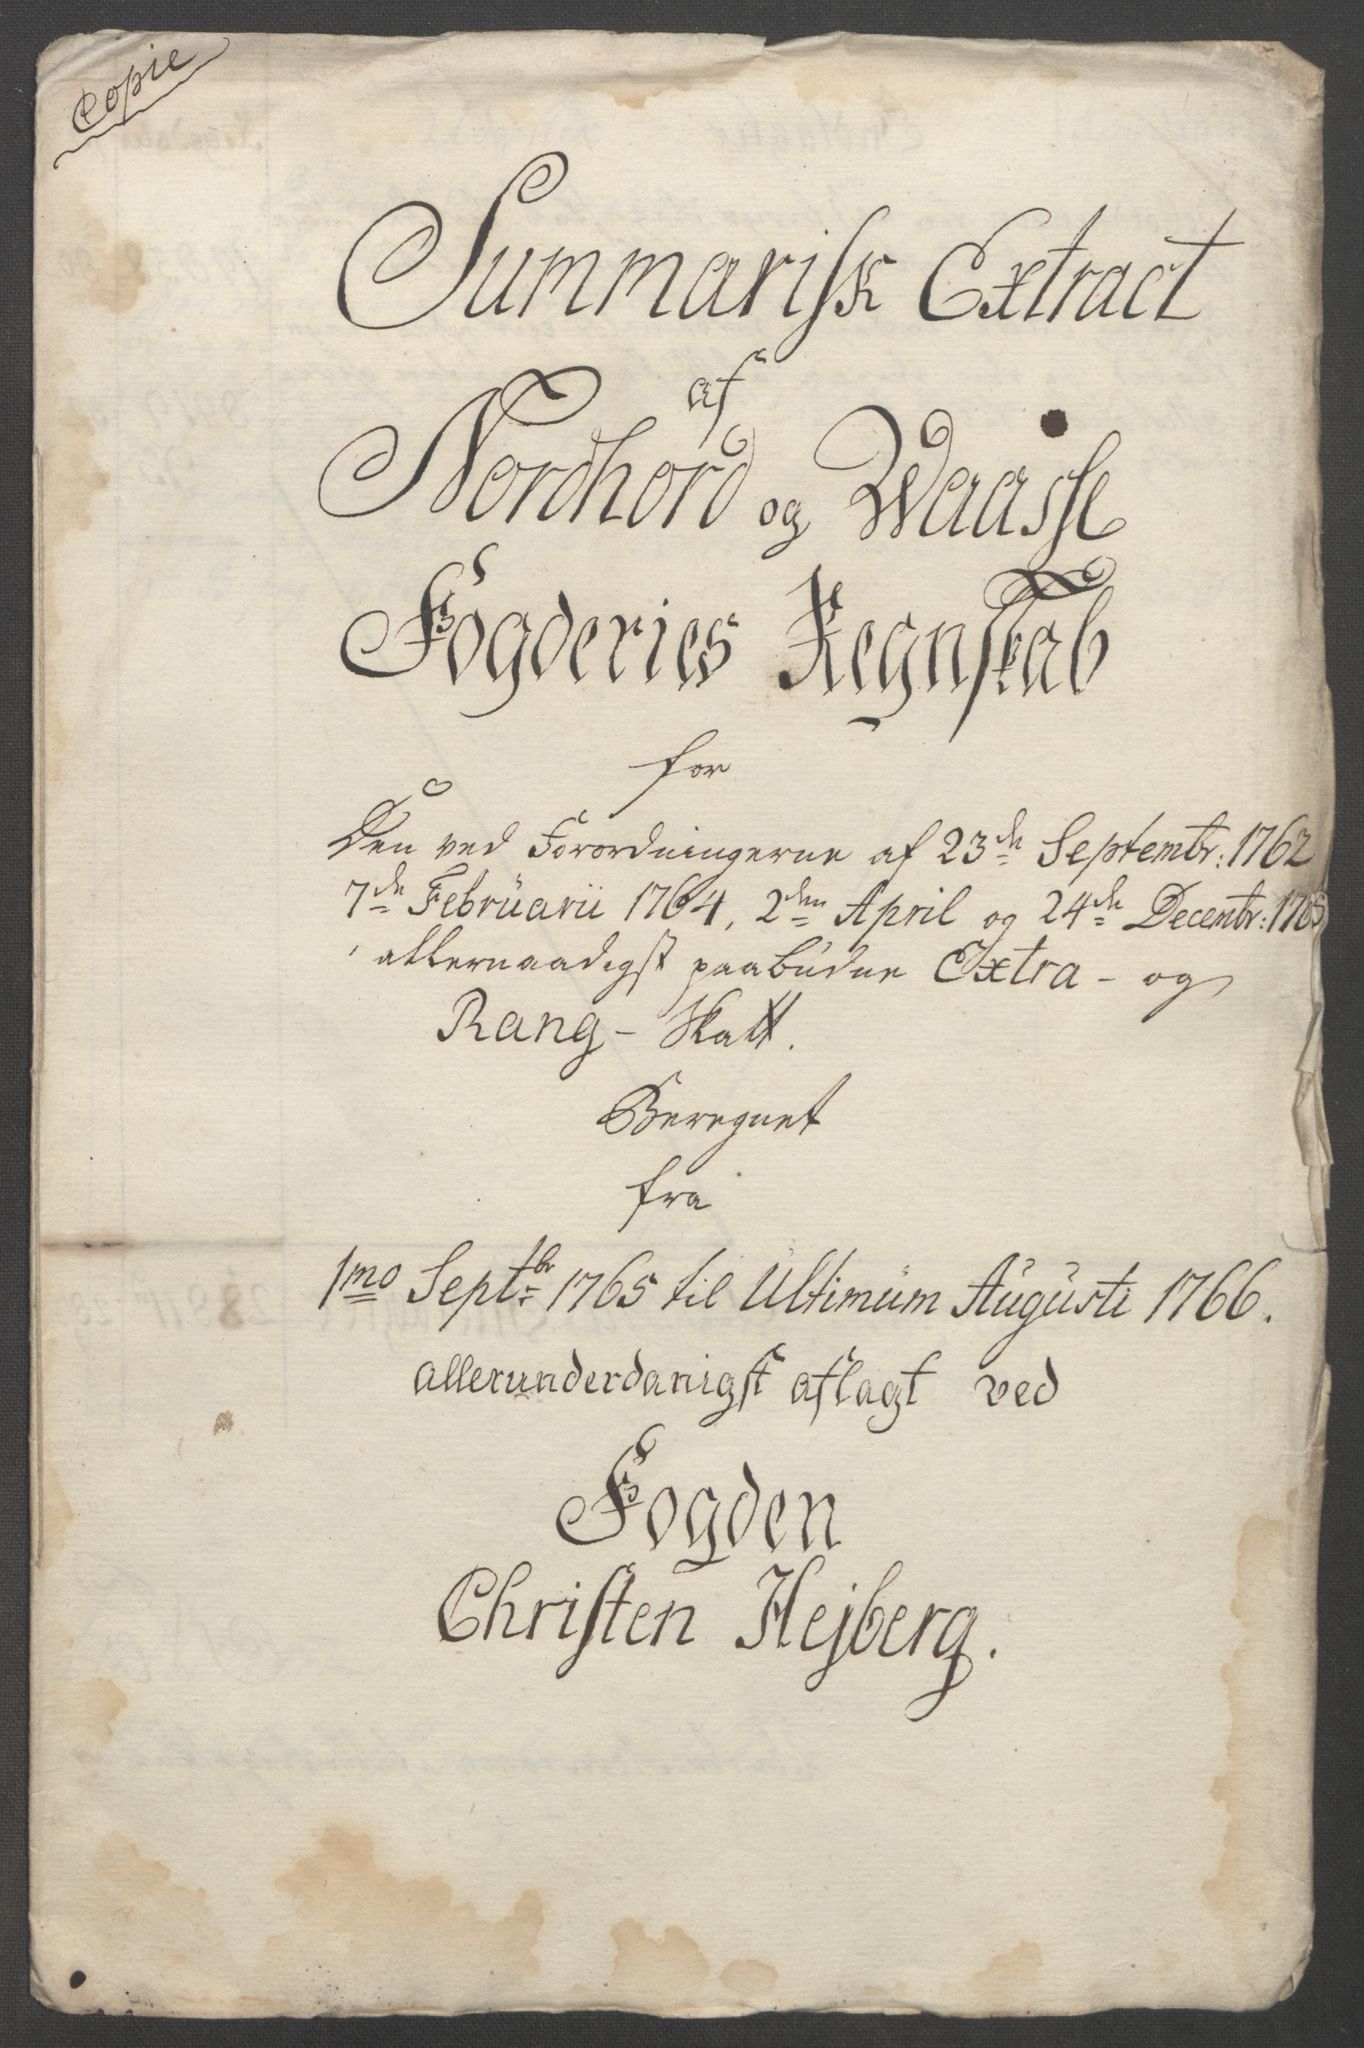 Copie
Summarisk Extract
af
Nordhord og Waasse
Fogderies Regnskab
for
Den ved Forordningerne af 23de Septembr: 1762
7de Februarii 1764, 2den April og 24de Decembr: 1765
allernaadigst paabudne Extra- og
Rang- Skatt.
Beregnet
fra
1mo Septbr 1765 til Ultimum Augusti 1766.
allerunderdanigst aflagt ved
Fogden
Christen Hejberg.